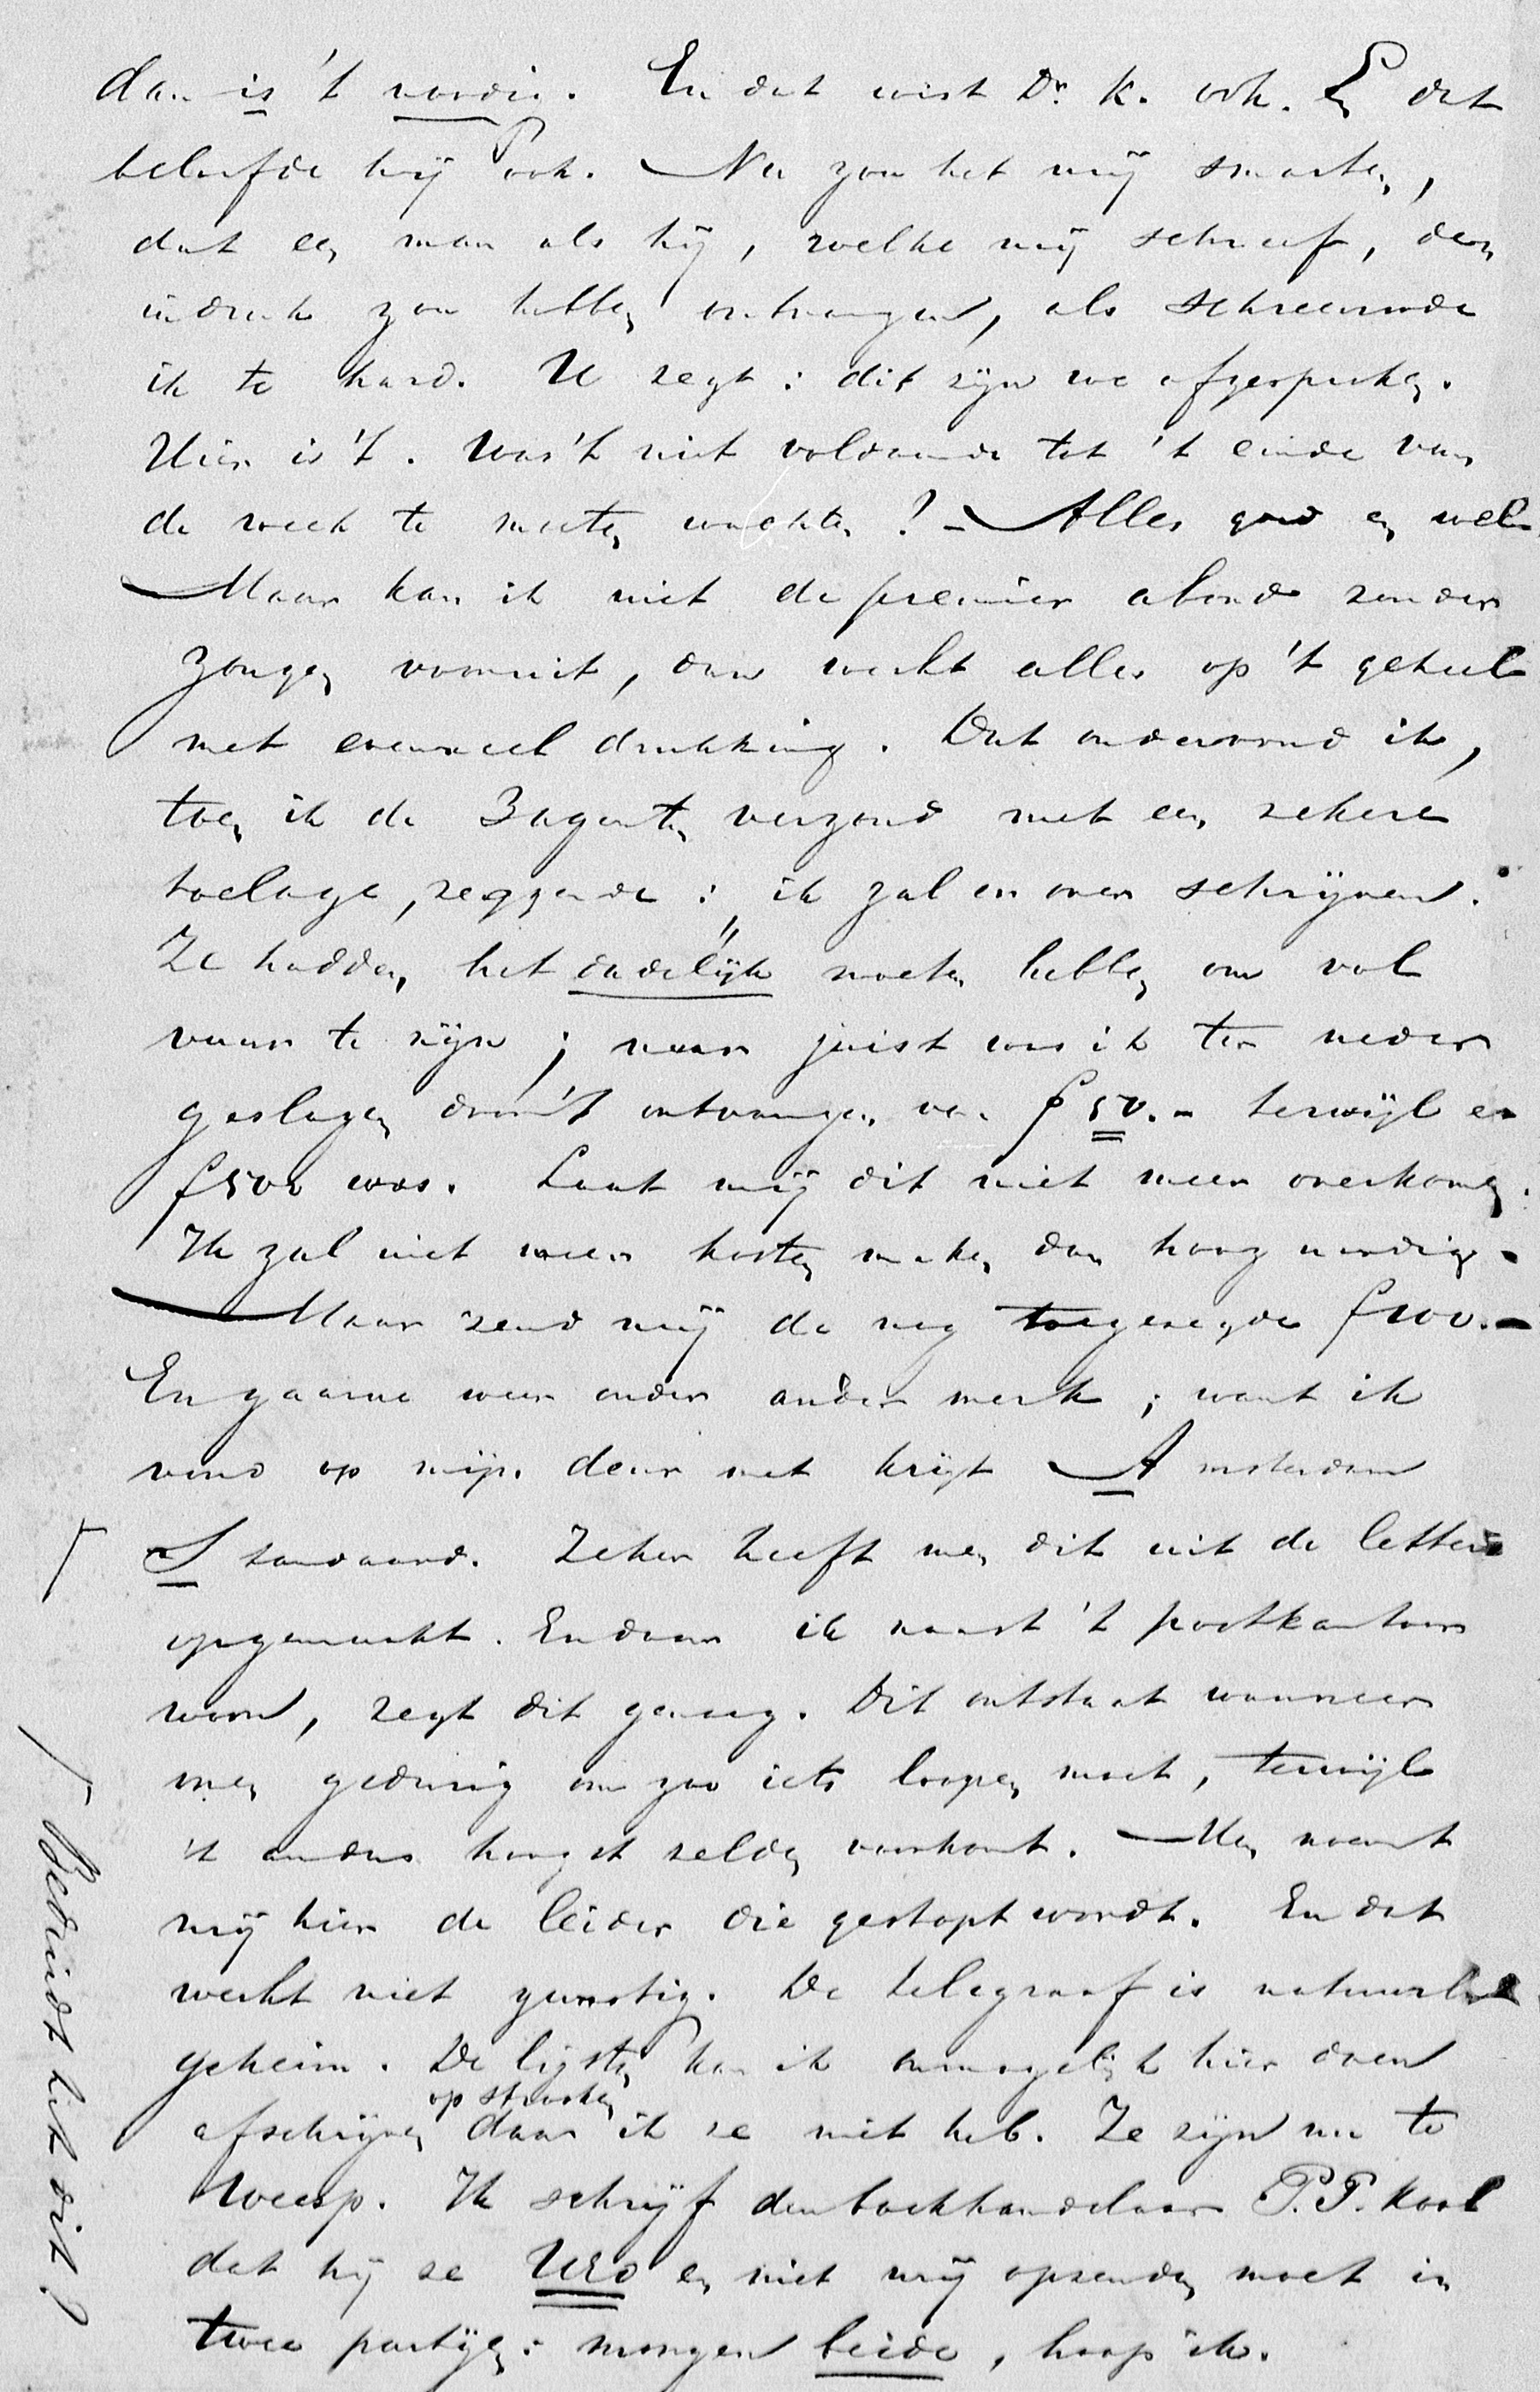 dan is 't noodig. En dat wist Dr. K. ook. En dat
beloofde hij ook. Nu zou het mij smarten,
dat een man als hij, welke mij schreef, den
indruk zou hebben ontvangen, als schreeuwde
ik te hard. U zegt: dit zijn we afgesproken.
Hier is 't. Was 't niet voldoende tot 't einde van
de week te moeten wachten? – Alles goed en wel.
Maar kan ik niet de premier abord zonder
zorgen vooruit, dan werkt alles op 't geheel
met evenveel drukking. Dat ondervond ik,
toen ik de 3 agenten verzond met een zekere
toelage, zeggende: ik zal er over schrijven.
Ze hadden het dadelijk moeten hebben om vol
vuur te zijn; maar juist was ik ter neder
geslagen door 't ontvangen van f 50.- terwijl er
f 500 was. Laat mij dit niet meer overkomen.
Ik zal niet meer kosten maken dan hoog noodig.
Maar zend mij de nog toegezegde f 100.-
En gaarne weer onder ander merk; want ik
vond op mijn deur met krijt Amsterdam
Standaard. Zeker heeft men dit uit de letters
opgemaakt. En daar ik naast 't postkantoor
woon, zegt dit genoeg. Dit ontstaat wanneer
men gedurig om zoo iets loopen moet, terwijl
't anders hoogst zelden voorkomt. Men noemt
mij hier de leider die gestopt wordt. En dat
werkt niet gunstig. De telegraaf is natuurlijk
geheim. De lijsten kan ik onmogelijk hier doen
op strooken
afschrijven daar ik ze niet heb. Ze zijn nu te
Weesp. Ik schrijf den boekhandelaar P.P. Kool
dat hij ze UEd en niet mij opzenden moet in
twee partijen: morgen beide, hoop ik.
Bedriegt hij dit?